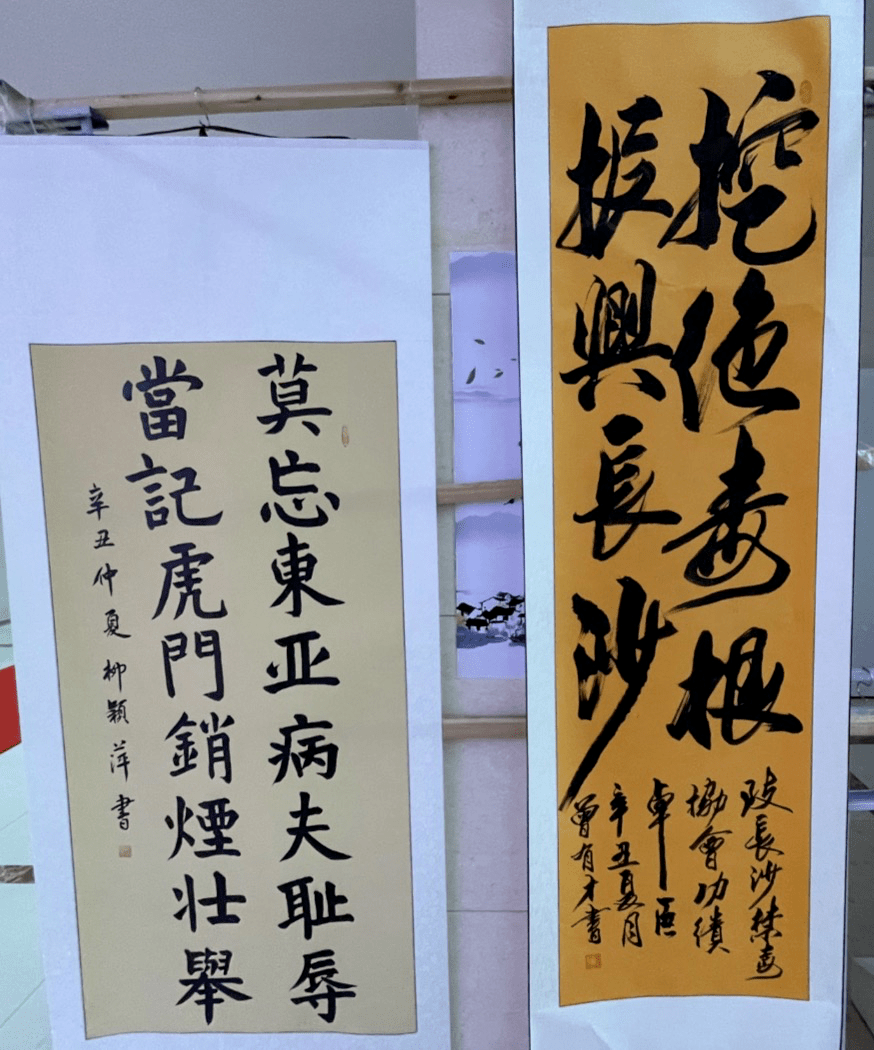 挖绝毒根
振興長沙
致長沙禁毒
協會功績
卓
辛丑夏月
曾有才書
莫忘東亚病夫耻辱
當記虎門銷煙壮舉
辛丑仲夏柳颖萍書